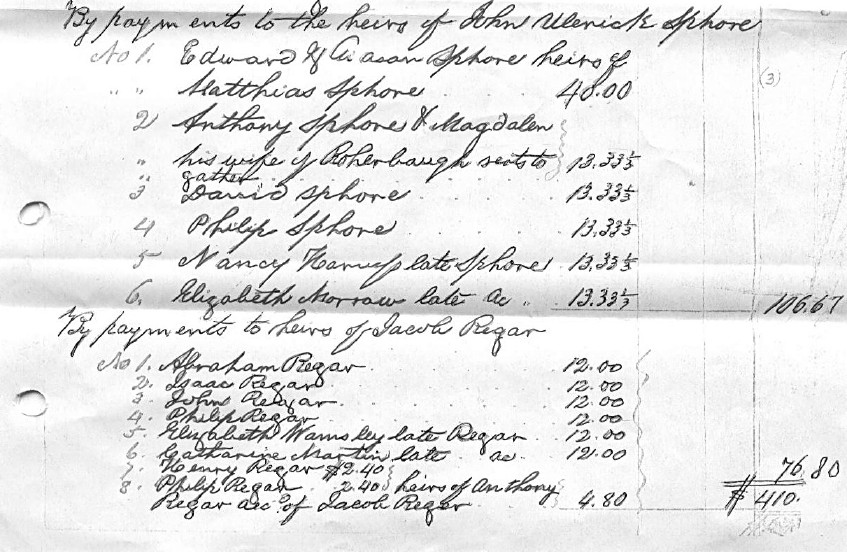 By paym ents to the heirs of John Ulerick Sphore
No 1. Edward & Sphore heirs of
" " Matthias Sphore . . . 40.00
(3)
2 Anthony Sphore & Magdalen
" his wife of Roherbaugh seats to 13.33⅓
" gather
3 David Sphore . . . . 13.33⅓
4 Philip Sphore . . . . 13.33⅓
5 Nancy late Sphore . 13.33⅓
6. Elizabeth Morraw late do " 13.33⅓ 106.67
By payments to heirs of Jacob Regar
No 1. Abraham Regar . . . 12.00
2. Isaac Regar . . . 12.00
3. John Regar . . . 12.00
4. Philip Regar . . . 12.00
5. Elizabeth Wamsley late Regar . 12.00
6 Catharine Martin late do . 12.00
7. Henry Regar $2.40
76.80
8. Philip Regar . 2.40 heirs of Anthony
$ 410.
Regar dec.d of Jacob Regar . . 4.80